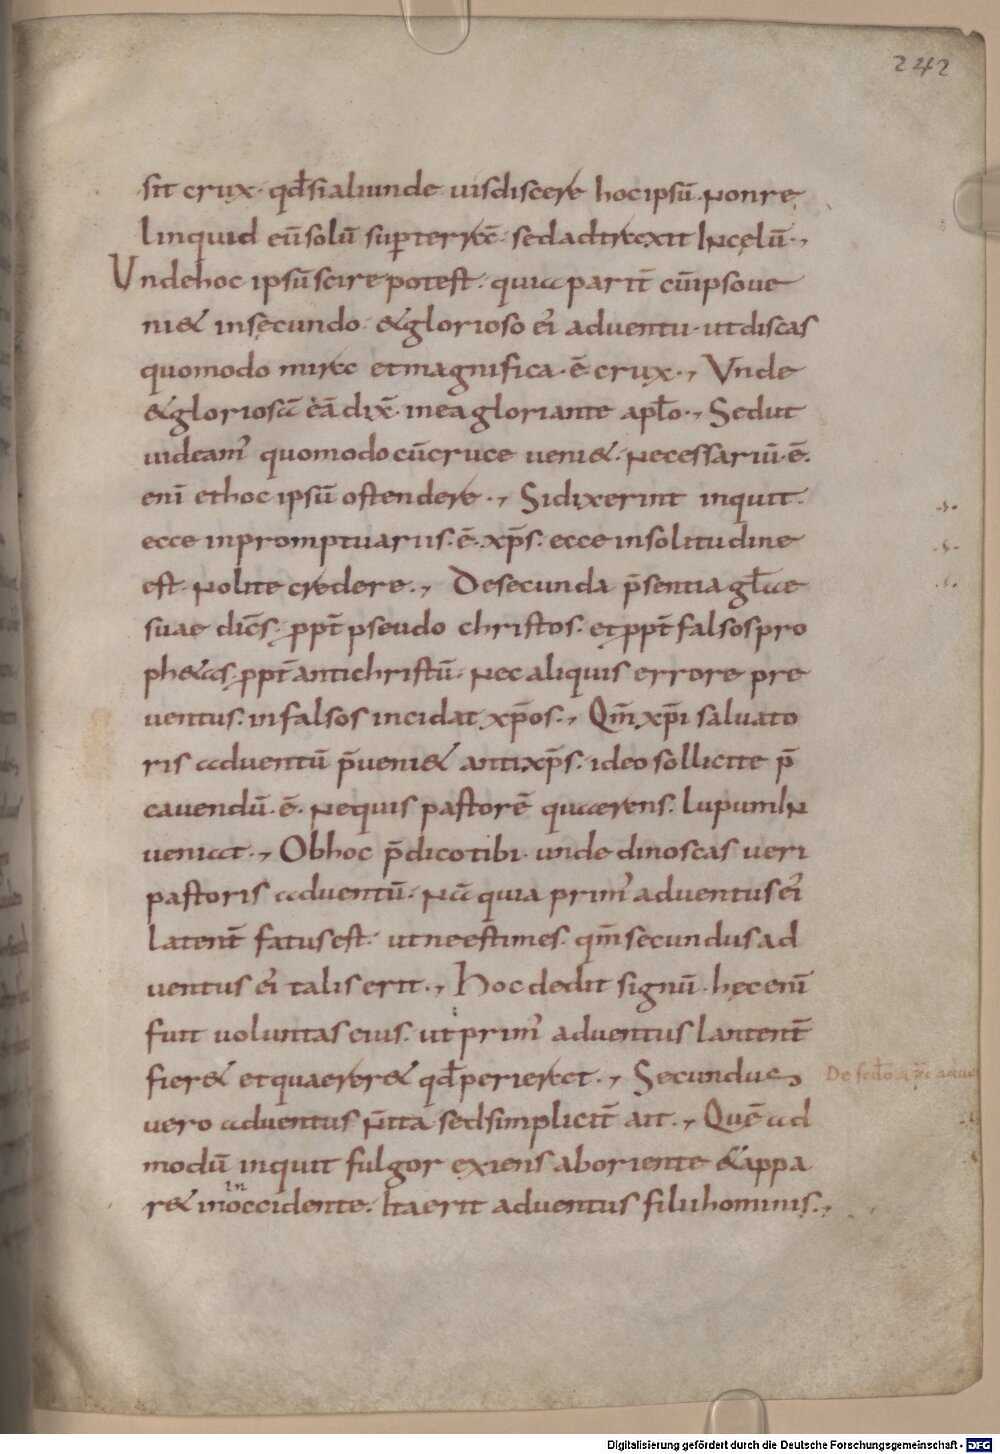 242
sit crux· qd̄ si aliunde uis discere hoc ipsū· Non re
linquid eū solū sup terrā· sed adtraxit IN cęlū·,
Vnde hoc ipsū scire potest· quia parit̄ cū ipso ue
ni& in secundo· & glorioso ei' aduentu· ut discas
quomodo mira et magnifica· ē crux·, Vnde
& gloriosā eā dix̄· in ea gloriante ap̄lo·, Sed ut
uideam' quomodo cū cruce ueni&· Necessariū· ē·
enī et hoc ipsū ostendere·, Si dixerint inquit·
ecce in promptuariis· ē· xp̄s· ecce in solitudine
est· Nolite credere·, De secunda p̄sentia gl̄ae
suae dic̄s· ppt̄ pseudo christos· et ppt̄ falsos pro
ph&as· ppt̄ antichristū· Nec aliquis errore pre
uentus· in falsos incidat xp̄os·, Qm̄ xp̄i saluato
ris aduentū p̄ueni& antixp̄s· ideo sollicite p̄
cauendū· ē· Ne quis pastorē quaerens· lupum IN
ueniat·, Ob hoc p̄dico tibi· unde dinoscas ueri
pastoris aduentū· Nā quia prim' aduentus ei'
latent̄ fatus est· ut ne estimes· qm̄ secundus ad
uentus ei' talis erit·, Hoc dedit signū· hęc enī
fuit uoluntas eius· ut prim' aduentus lantent̄
fier& et quaerer& qd̄ perierat·, Secundus
De scd̄o xp̄i aduen
uero aduentus N̄ ita sed simplicit̄ ait·, Quē ad
modū inquit fulgor exiens ab oriente & appa
in
r& in occidente· Ita erit aduentus filii hominis·,
Digitalisierung gefördert durch die Deutsche Forschungsgemeinschaft - DFG